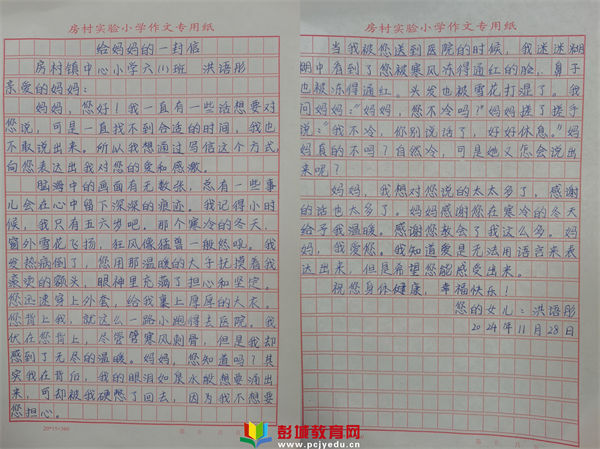 房村实验小学作文专用纸
给妈妈的一封信
房村镇中心小学六(1)班 洪语彤
亲爱的妈妈:
妈妈,您好!我一直有一些话想要对
您说,可是一直找不到合适的时间,我也
不敢说出来。所以我想通过写信这个方式,
向您表达出我对您的爱和感激。
脑海中的画面有无数张,总有一些事
儿会在心中留下深深的痕迹。我记得小时
候,我只有五六岁吧。那个寒冷的冬天,
窗外雪花飞扬,狂风像猛兽一般怒吼。我
发热病倒了,您用那温暖的大手抚摸着我
滚烫的额头,眼神里充满了担心和坚定。
您迅速穿上外套,给我裹上厚厚的大衣。
您背上我,就这么一路小跑得去医院。我
伏在您背上,尽管管寒风刺骨,但是我却
感到了无尽的温暖。妈妈,您知道吗?其
实我在背后,我的眼泪如泉水般想要涌出
来,可却被我硬憋了回去,因为我不想要
您担心。
20*15=300
房村实验小学作文专用纸
当我被您送到医院的时候,我迷迷糊
糊中看到了您被寒风冻得通红的脸,鼻子
也被冻得通红。头发也被雪花打湿了。我
问妈妈:“妈妈,您不冷吗?”妈妈搓了搓手
说:“我不冷,你别说话了,好好休息。”妈
妈真的不吗?自然冷,可是她又怎会说出
来呢?
妈妈,我想对您说的太太多了,感谢
的话也太多了。妈妈感谢您在寒冷的冬天
给予我温暖。感谢您教会了我这么多。妈
妈,我爱您。我知道爱是无法用语言来表
达出来,但是希望您能感受出来。
祝您身体健康,幸福快乐!
您的女儿:洪语彤
2024年11月28日
彭城教育网
www.pcjyedu.cn